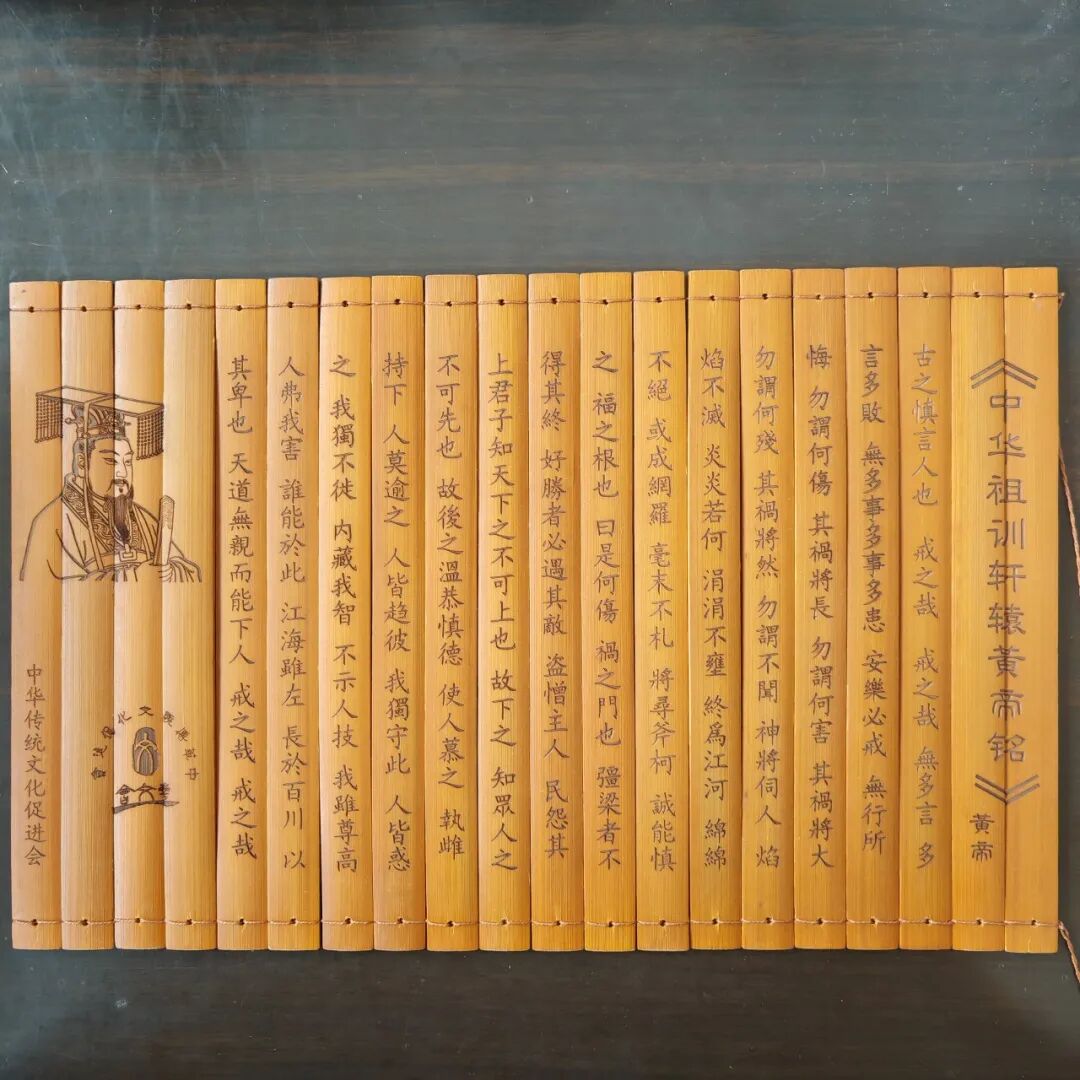 《中华祖训轩辕黄帝铭》
黄帝
古之慎言人也 戒之哉 戒之哉 無多言 多
言多敗 無多事多事多患 安樂必戒 無行所
悔 勿謂何傷 其禍將長 勿謂何害 其禍將大
勿謂何殘 其禍將然 勿謂不聞 神將伺人 焰
焰不滅 炎炎若何 涓涓不壅 終為江河 綿綿
不絕 或成網羅 毫末不札 將尋斧柯 誠能慎
之 福之根也 曰是何傷 禍之門也 彊梁者不
得其終 好勝者必遇其敵 盜憎主人 民怨其
上君子知天下之不可上也 故下之 知眾人之
不可先也 故後之溫恭慎德 使人慕之 執雌
持下 人莫逾之 人皆趋彼 我獨守此 人皆惑
之 我獨不徙 内藏我智 不示人技 我雖尊高
人弗我害 誰能於此 江海雖左 長於百川 以
其卑也 天道無親而能下人 戒之哉 戒之哉
中华传统文化促进会